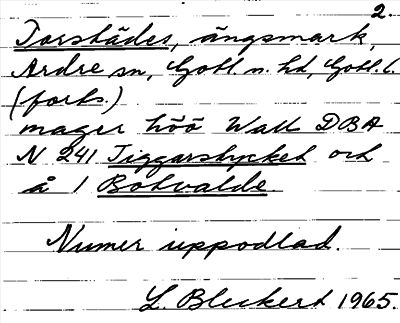 2.
Torstädes, ängsmark,
Ardre sn, Gotl. n. hd, Gotl. l.
(forts.)
mager höö Wall DBA
N 241 Tiggarstycket och
å 1 Botvalde.
Numer uppodlad.
L. Bleckert 1965.